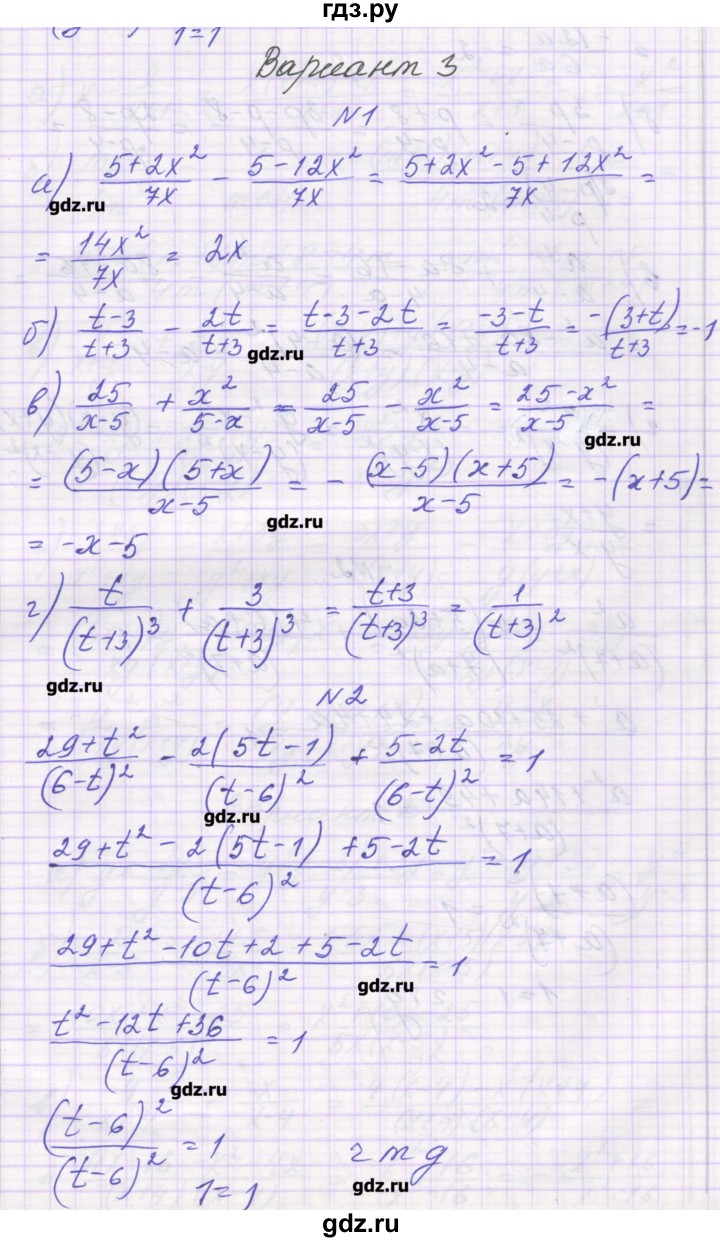 гдз.ру
1=1
Вариант 3
N1
а) (5+2x²)/(7x) - (5-12x²)/(7x) = (5+2x²-5+12x²)/(7x) =
gdz.ru
= (14x²)/(7x) = 2x
б) (t-3)/(t+3) - (2t)/(t+3) = (t-3-2t)/(t+3) = (-3-t)/(t+3) = (-(3+t))/(t+3) = -1
gdz.ru
в) 25/(x-5) + x²/(5-x) = 25/(x-5) - x²/(x-5) = (25-x²)/(x-5) =
gdz.ru
= ((5-x)(5+x))/(x-5) = - ((x-5)(x+5))/(x-5) = -(x+5) =
gdz.ru
= -x-5
г) t/(t+3)³ + 3/(t+3)³ = (t+3)/(t+3)³ = 1/(t+3)²
gdz.ru
N2
(29+t²)/(6-t)² - (2(5t-1))/(t-6)² + (5-2t)/(6-t)² = 1
gdz.ru
(29+t²-2(5t-1)+5-2t)/(t-6)² = 1
(29+t²-10t+2+5-2t)/(t-6)² = 1
gdz.ru
(t²-12t+36)/(t-6)² = 1
gdz.ru
(t-6)²/(t-6)² = 1
1=1 чтд
gdz.ru
gdz.ru